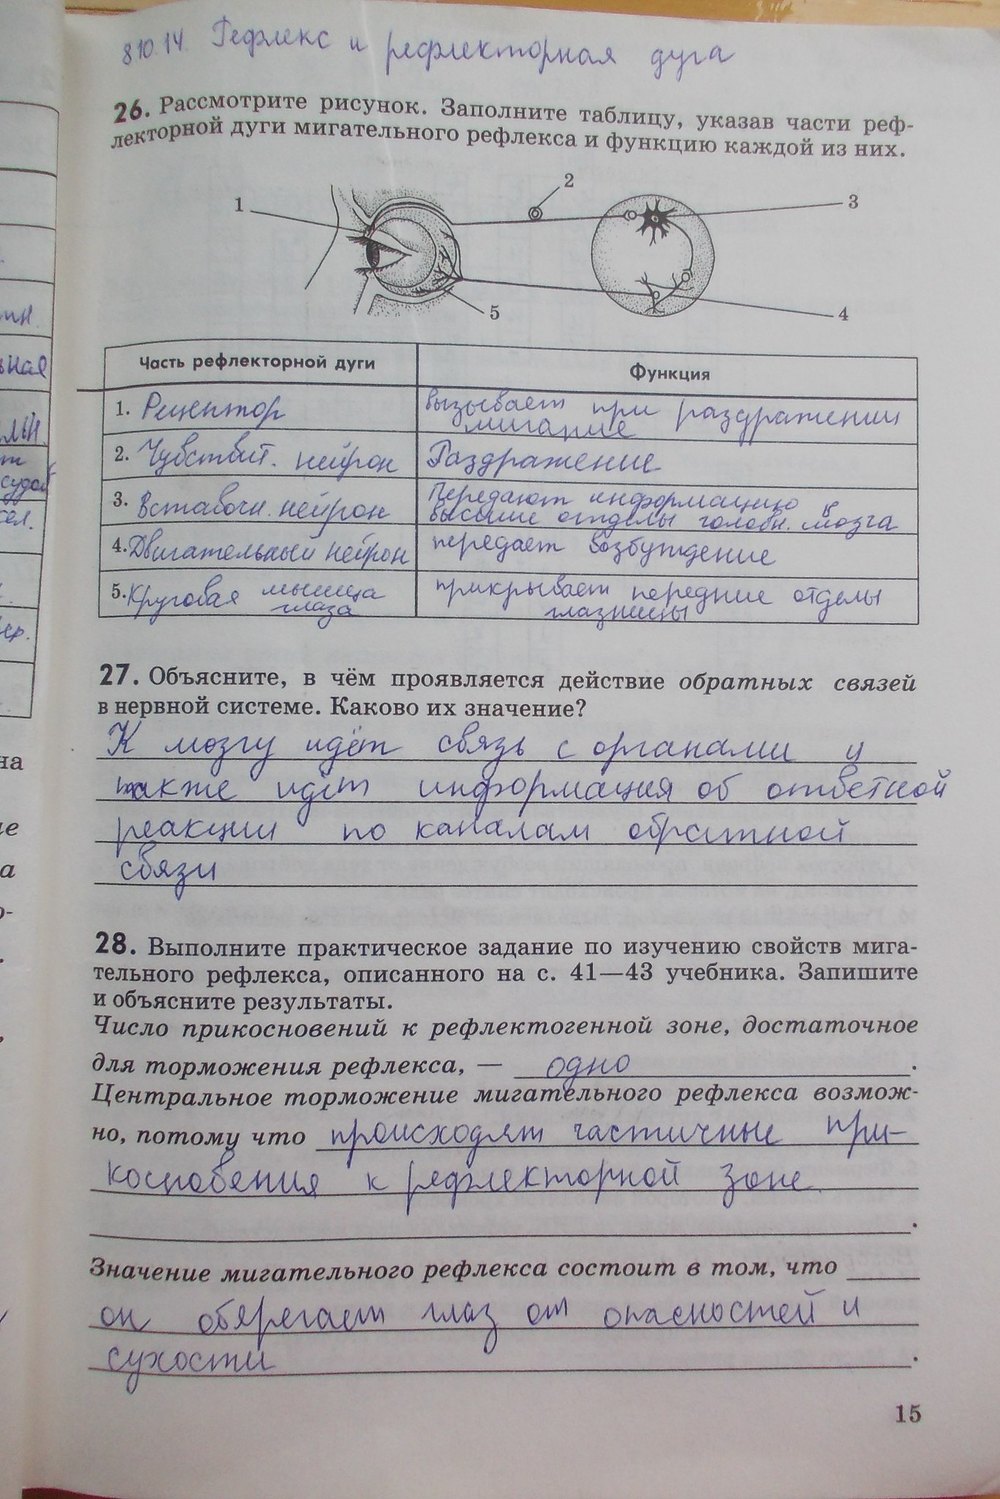 8 10.14. Рефлекс и рефлекторная дуга
26. Рассмотрите рисунок. Заполните таблицу, указав части реф-
лекторной дуги мигательного рефлекса и функцию каждой из них.
1
2
3
4
5
Часть рефлекторной дуги
Функция
1. Рецептор
вызывает при раздражении
мигание
2. Чувствит. нейрон
Раздражение
3. Вставочн. нейрон
Передают информацию в
высшие отделы головн. мозга
4. Двигательный нейрон
передает возбуждение
5. Круговая мышца
глаза
прикрывает передние отделы
глазницы
27. Объясните, в чём проявляется действие обратных связей
в нервной системе. Каково их значение?
К мозгу идёт связь с органами и
также идёт информация об ответной
реакции по каналам обратной
связи
28. Выполните практическое задание по изучению свойств мига-
тельного рефлекса, описанного на с. 41—43 учебника. Запишите
и объясните результаты.
Число прикосновений к рефлектогенной зоне, достаточное
для торможения рефлекса, — одно.
Центральное торможение мигательного рефлекса возмож-
но, потому что происходят частичные при-
косновения к рефлекторной зоне
.
Значение мигательного рефлекса состоит в том, что
он оберегает глаз от опасностей и
сухости.
15